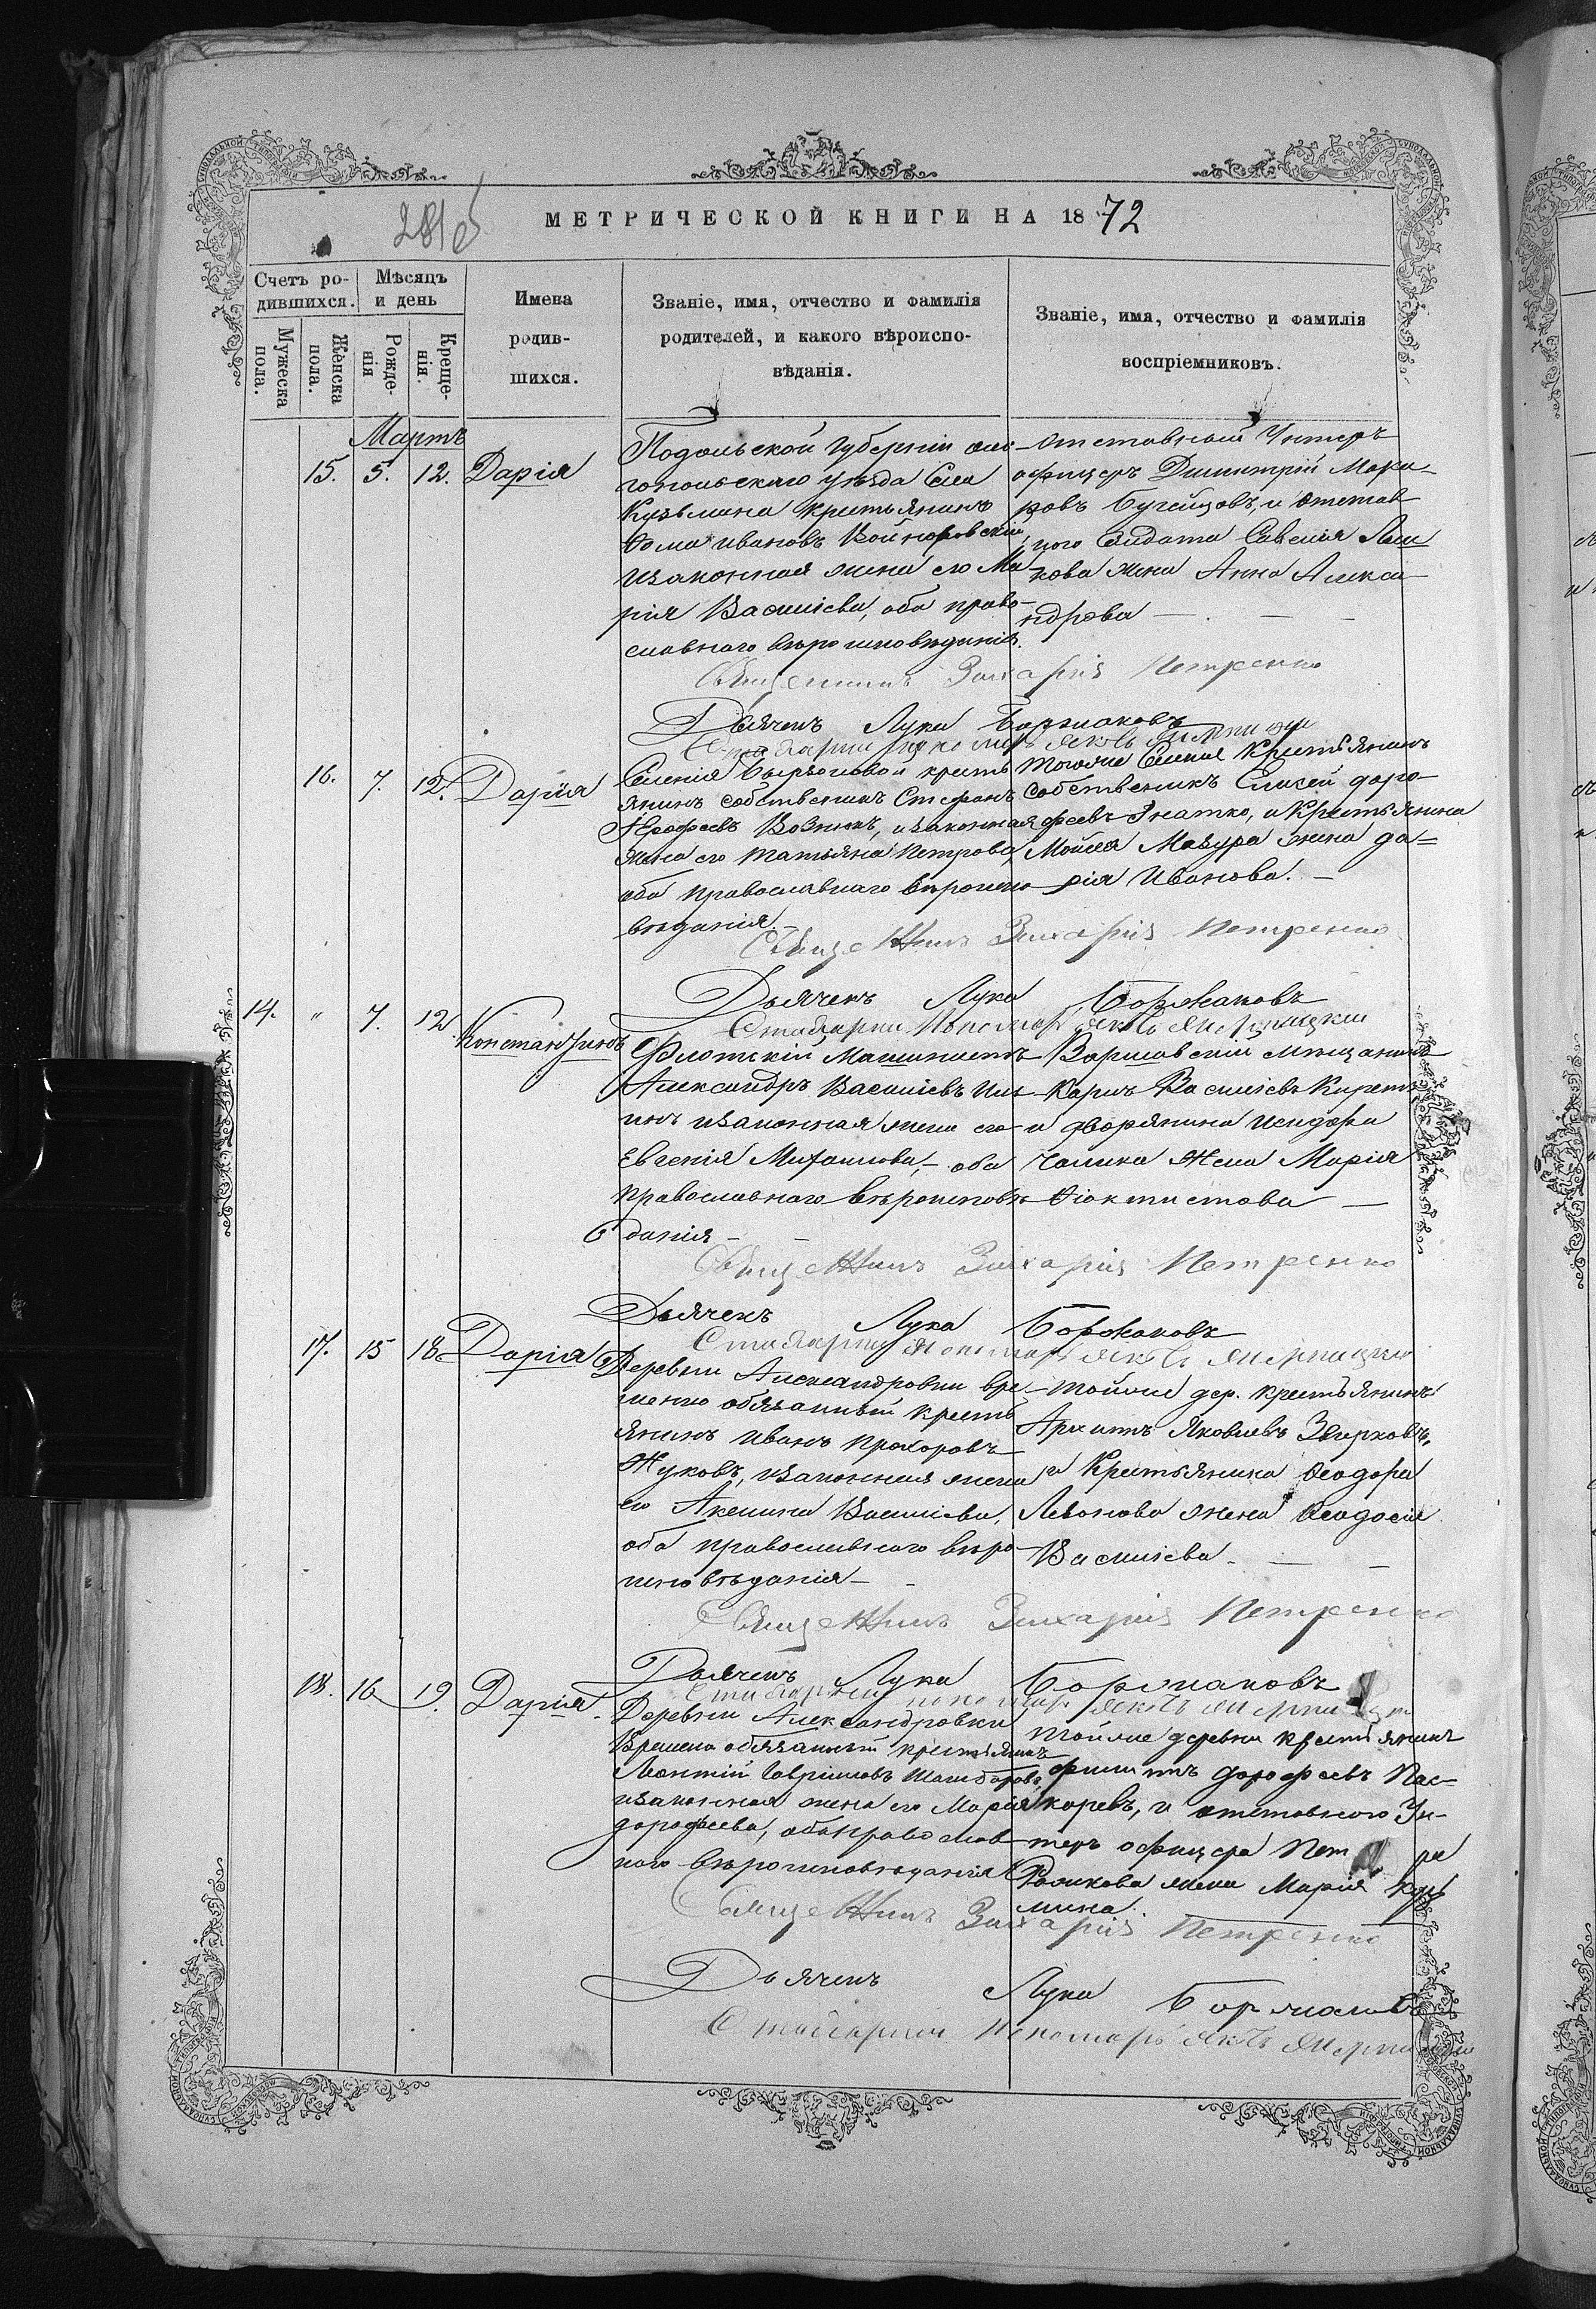 281об
МЕТРИЧЕСКОЙ КНИГИ НА 1872
Счетъ родившихся.
Мѣсяцъ и день
Имена родившихся.
Званіе, имя, отчество и фамилія родителей, и какого вѣроисповѣданія.
Званіе, имя, отчество и фамилія воспріемниковъ.
Мужеска пола.
Женска пола.
Рожденія
Крещенія.
Мартъ
15. 5. 12. Дарія
Подольской губерніи
гопольскаго уѣзда Села
Кузьмина крестьянинъ
Ѳома Ивановъ Войнаровскій,
и законная жена его Ма-
рія Васильева, оба право-
славнаго вѣроисповѣданія.
Отставный Унтеръ
офицеръ Димитрій Мака-
ровъ Бугейцовъ, и отстав
ного Солдата Савелія
кова жена Анна Алекса-
ндрова
Священникъ Захарія Петренко
Дьячекъ Лука Боржаковъ
16. 7. 12. Дарія
Селенія крестья
янинъ собственникъ Стефанъ
Ерофеевъ Вознюкъ, и законная
жена его Татьяна Петрова,
оба православнаго вѣроиспо
вѣданія.
Тогоже Селенія Крестьянинъ
собственникъ Елисей Доро-
феевъ Гнатко, и Крестьянина
Мойсея Мазура жена Да=
рія Иванова.
Священникъ Захарія Петренко
Дьячекъ Лука Боржаковъ
14. " 7. 12 Константинъ
Флотскій Машинистъ
Александръ Васильевъ Иль
инъ и законная жена его
Евгенія Михаилова, оба
православнаго вѣроисповѣ
данія
Варшавскій мѣщанинъ
Карпъ Васильевъ
и дворянина Исидора
Чалика жена Марія
Ѳіоктистова
Священникъ Захарія Петренко
Дьячекъ Лука Боржаковъ
17. 15 18 Дарія
Деревни Александровки вре
менно обязанный крестъ
янинъ Иванъ Прохоровъ
Жуковъ, и законная жена
его Акелина Васильева,
оба православнаго вѣро
исповѣданія
Тойже дер. крестьянинъ
Архипъ Яковлевъ Звирковъ,
и Крестьянина Ѳеодора
Левонова жена Ѳеодосія
Васильева.
Священникъ Захарія Петренко
Дьячекъ Лука Боржаковъ
18. 16 19. Дарія.
Деревни Александровки
Временно обязанный крестьянинъ
Леонтій Гавріиловъ
и законная жена его Марія
Дорофеева, оба православ
наго вѣроисповѣданія
Тойже деревни крестьянинъ
Филиппъ Дорофеевъ Пис-
каревъ, и отставного Ун-
теръ офицера Петра
жена Марія Кузь
мина.
Священникъ Захарія Петренко
Дьячекъ Лука Боржаковъ